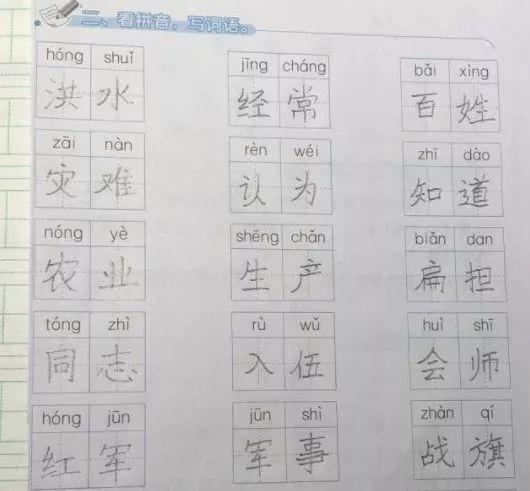 二、看拼音，写词语。
hóng shuǐ jīng cháng bǎi xìng
洪水 经常 百姓
zāi nàn rèn wéi zhī dào
灾难 认为 知道
nóng yè shēng chǎn biǎn dan
农业 生产 扁担
tóng zhì rù wǔ huì shī
同志 入伍 会师
hóng jūn jūn shì zhàn qí
红军 军事 战旗